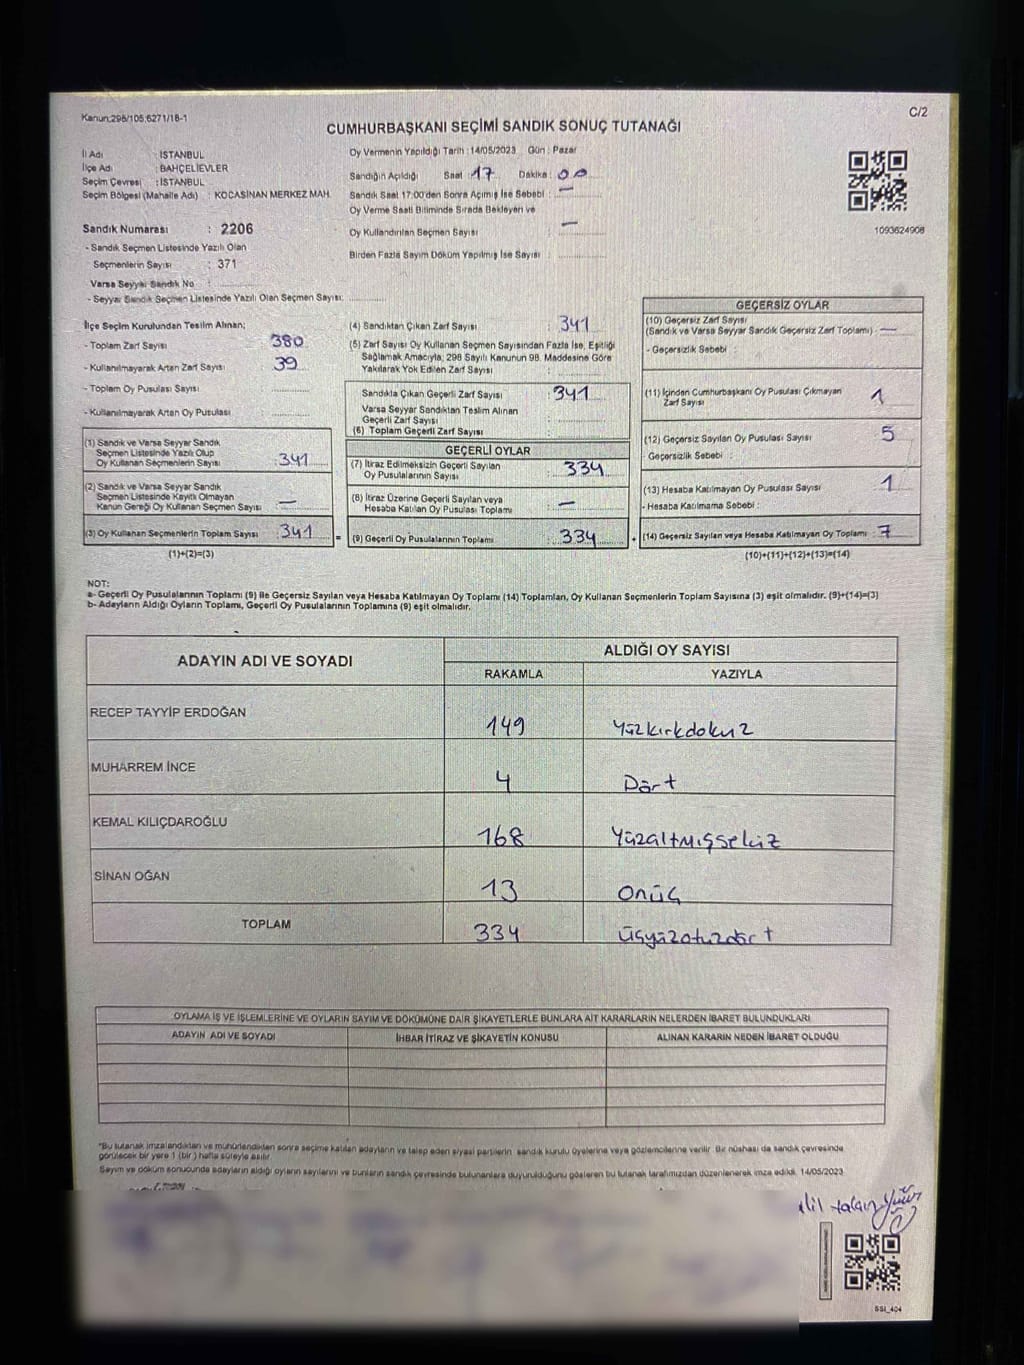 Kanun:298/105;6271/16-1
C/2
CUMHURBAŞKANI SEÇİMİ SANDIK SONUÇ TUTANAĞI
İl Adı : İSTANBUL
İlçe Adı : BAHÇELİEVLER
Seçim Çevresi : İSTANBUL
Seçim Bölgesi (Mahalle Adı) : KOCASİNAN MERKEZ MAH.
Sandık Numarası : 2206
- Sandık Seçmen Listesinde Yazılı Olan
Seçmenlerin Sayısı : 371
Varsa Seyyar Sandık No :
- Seyyar Sandık Seçmen Listesinde Yazılı Olan Seçmen Sayısı:
Oy Vermenin Yapıldığı Tarih : 14/05/2023 Gün : Pazar
Sandığın Açıldığı Saat : 17 Dakika : 00
Sandık Saat 17:00'den Sonra Açılmış İse Sebebi : —
Oy Verme Saati Bitiminde Sırada Bekleyen ve
Oy Kullandırılan Seçmen Sayısı : —
Birden Fazla Sayım Döküm Yapılmış İse Sayısı :
1093624908
İlçe Seçim Kurulundan Teslim Alınan;
- Toplam Zarf Sayısı : 380
- Kullanılmayarak Artan Zarf Sayısı : 39
- Toplam Oy Pusulası Sayısı :
- Kullanılmayarak Artan Oy Pusulası :
(1) Sandık ve Varsa Seyyar Sandık
Seçmen Listesinde Yazılı Olup
Oy Kullanan Seçmenlerin Sayısı : 341
(2) Sandık ve Varsa Seyyar Sandık
Seçmen Listesinde Kayıtlı Olmayan
Kanun Gereği Oy Kullanan Seçmen Sayısı : —
(3) Oy Kullanan Seçmenlerin Toplam Sayısı : 341
(1)+(2)=(3)
(4) Sandıktan Çıkan Zarf Sayısı : 341
(5) Zarf Sayısı Oy Kullanan Seçmen Sayısından Fazla İse, Eşitliği
Sağlamak Amacıyla, 298 Sayılı Kanunun 98. Maddesine Göre
Yakılarak Yok Edilen Zarf Sayısı :
Sandıkta Çıkan Geçerli Zarf Sayısı : 341
Varsa Seyyar Sandıktan Teslim Alınan
Geçerli Zarf Sayısı :
(6) Toplam Geçerli Zarf Sayısı :
GEÇERLİ OYLAR
(7) İtiraz Edilmeksizin Geçerli Sayılan
Oy Pusulalarının Sayısı : 334
(8) İtiraz Üzerine Geçerli Sayılan veya
Hesaba Katılan Oy Pusulası Toplamı : —
(9) Geçerli Oy Pusulalarının Toplamı : 334
GEÇERSİZ OYLAR
(10) Geçersiz Zarf Sayısı
(Sandık ve Varsa Seyyar Sandık Geçersiz Zarf Toplamı) : —
- Geçersizlik Sebebi :
(11) İçinden Cumhurbaşkanı Oy Pusulası Çıkmayan
Zarf Sayısı : 1
(12) Geçersiz Sayılan Oy Pusulası Sayısı : 5
- Geçersizlik Sebebi :
(13) Hesaba Katılmayan Oy Pusulası Sayısı : 1
- Hesaba Katılmama Sebebi :
(14) Geçersiz Sayılan veya Hesaba Katılmayan Oy Toplamı : 7
(10)+(11)+(12)+(13)=(14)
NOT:
a- Geçerli Oy Pusulalarının Toplamı (9) ile Geçersiz Sayılan veya Hesaba Katılmayan Oy Toplamı (14) Toplamları, Oy Kullanan Seçmenlerin Toplam Sayısına (3) eşit olmalıdır. (9)+(14)=(3)
b- Adayların Aldığı Oyların Toplamı, Geçerli Oy Pusulalarının Toplamına (9) eşit olmalıdır.
ADAYIN ADI VE SOYADI
ALDIĞI OY SAYISI
RAKAMLA YAZIYLA
RECEP TAYYİP ERDOĞAN 149 Yüzkırkdokuz
MUHARREM İNCE 4 Dört
KEMAL KILIÇDAROĞLU 168 Yüzaltmışsekiz
SİNAN OĞAN 13 Onüç
TOPLAM 334 Üçyüzotuzdört
OYLAMA İŞ VE İŞLEMLERİNE VE OYLARIN SAYIM VE DÖKÜMÜNE DAİR ŞİKAYETLERLE BUNLARA AİT KARARLARIN NELERDEN İBARET BULUNDUKLARI
ADAYIN ADI VE SOYADI İHBAR İTİRAZ VE ŞİKAYETİN KONUSU ALINAN KARARIN NEDEN İBARET OLDUĞU
*Bu tutanak imzalandıktan ve mühürlendikten sonra seçime katılan adayların ve talep eden siyasi partilerin sandık kurulu üyelerine veya gözlemcilerine verilir. Bir nüshası da sandık çevresinde
görülecek bir yere 1 (bir) hafta süreyle asılır.
Sayım ve döküm sonucunda adayların aldığı oyların sayılarını ve bunların sandık çevresinde bulunanlara duyurulduğunu gösteren bu tutanak tarafımızdan düzenlenerek imza edildi. 14/05/2023
SSI_404